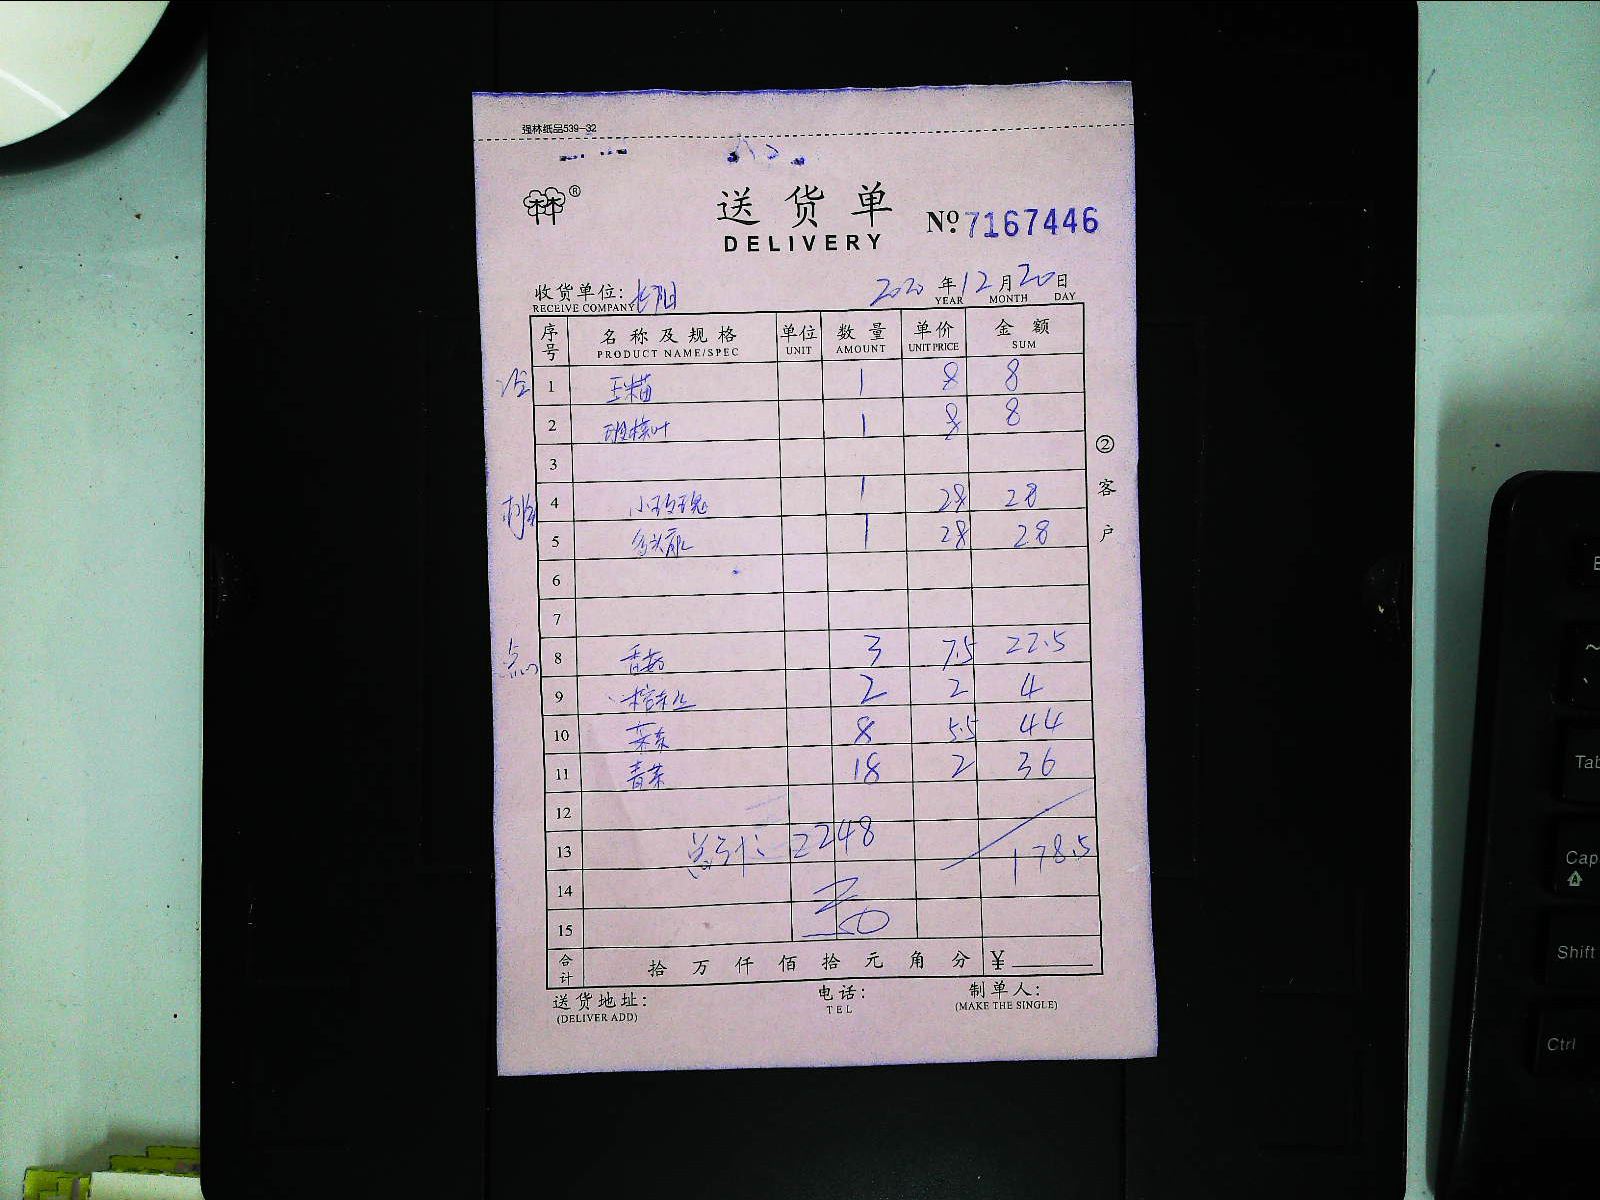 强林纸品539-32
林林®
送货单 № 7167446
DELIVERY
收货单位: 长阳 2020 年 12 月 20 日
RECEIVE COMPANY YEAR MONTH DAY
序号 名称及规格 单位 数量 单价 金额
PRODUCT NAME/SPEC UNIT AMOUNT UNIT PRICE SUM
冷 1 1 8 8
2 1 8 8
3
4 小玫瑰 1 28 28
5 1 28 28
6
7
点心 8 香菇 3 7.5 22.5
9 2 2 4
10 8 5.5 44
11 青菜 18 2 36
12
13 总计: 2248 178.5
14
15
合计 拾 万 仟 佰 拾 元 角 分 ¥
送货地址: 电话: 制单人:
(DELIVER ADD) TEL (MAKE THE SINGLE)
② 客户
E
~
Tab
Cap
Shift
Ctrl